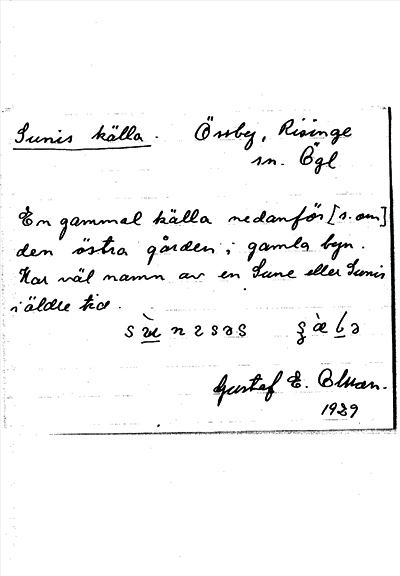 Sunis källa. Össby, Risinge
sn. Ögl
En gammal källa nedanför [s. om]
den östra gården i gamla byn.
Har väl namn av en Sune eller Sunis
i äldre tid.
Gustaf E.
1929